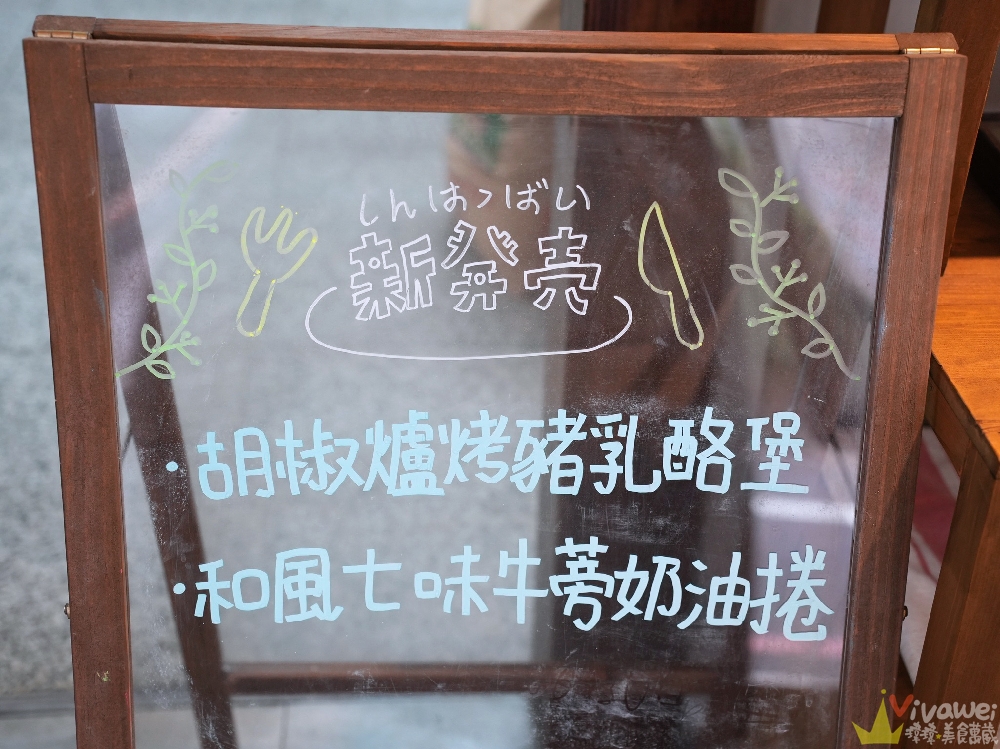 しんはつばい
新発売
·胡椒爐烤豬乳酪堡
·和風七味牛蒡奶油捲
Vivawei
美食萬歲